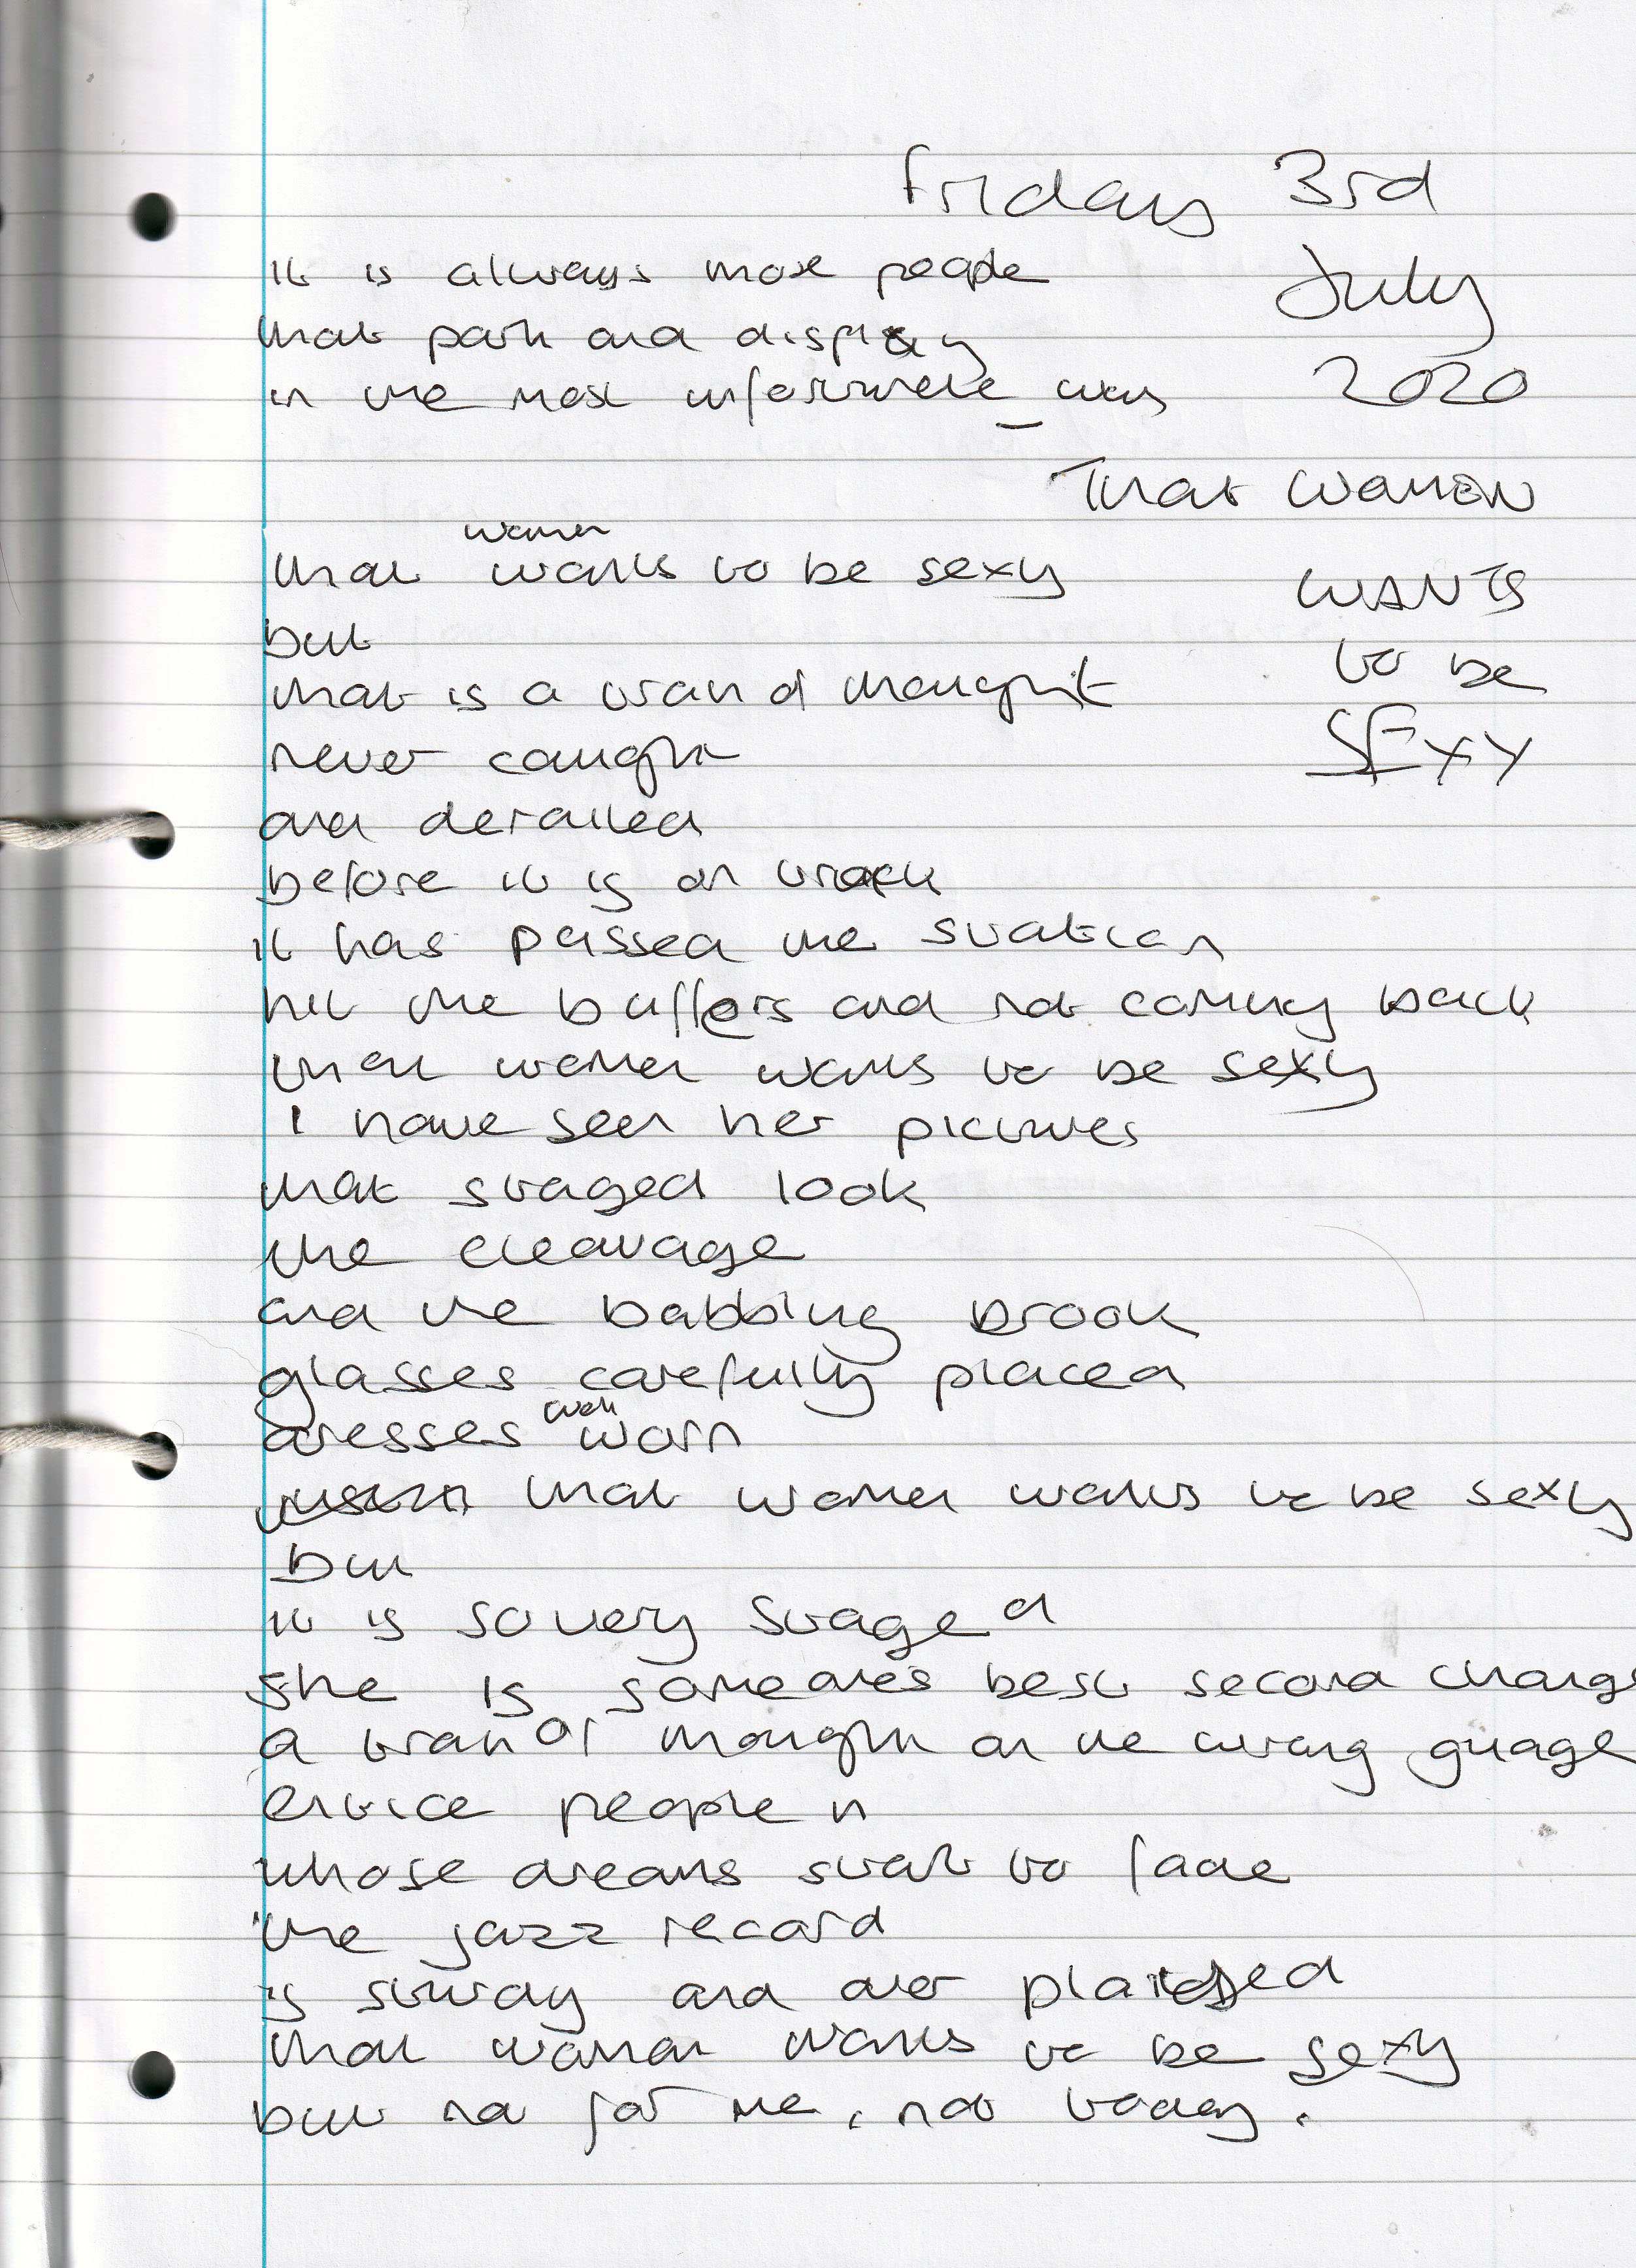 Friday 3rd
July
2020
it is always those people
that park and display
in the most way
That Woman
WANTS
to be
SEXY
that woman wants to be sexy
but
that is a train of thought
never caught
and derailed
before it is on track
it has passed the station
hit the buffers and not coming back
that woman wants to be sexy
I have seen her pictures
that staged look
the cleavage
and the babbling brook
glasses carefully placed
dresses well worn
that woman wants to be sexy
but
it is so very staged
she is someones best second
a train of thought on the wrong guage
entice people in
whose dreams start to fade
the jazz record
is and over played
that woman wants to be sexy
but not for me, not today.